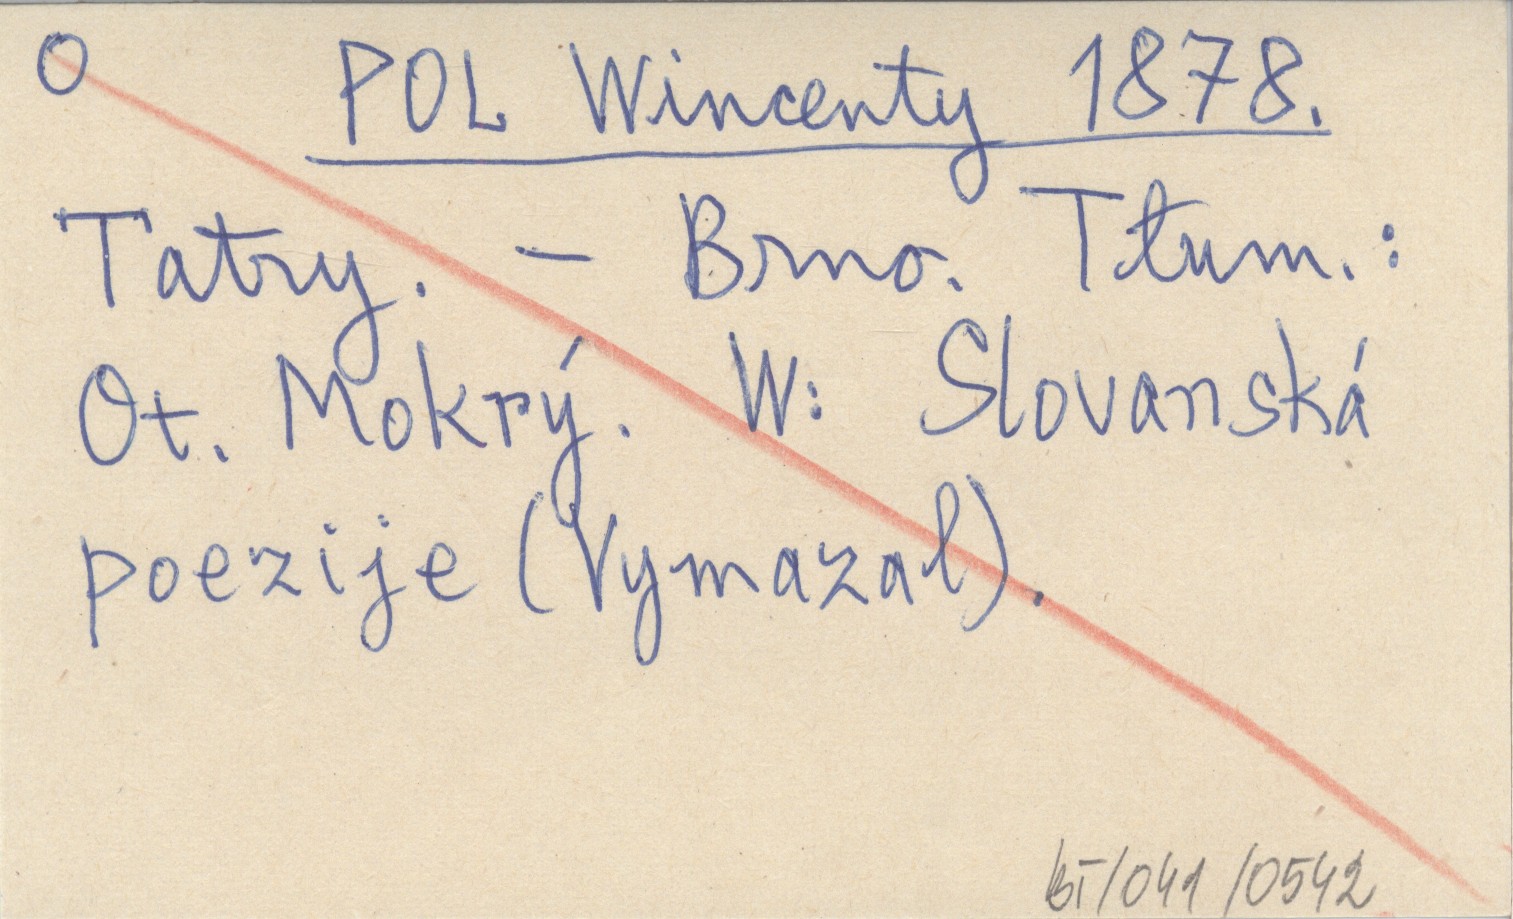 O POL Wincenty 1878.
Tatry. - Brno. Tłum.:
Ot. Mokrý. W: Slovanská
poezije (Vymazal).
BT/041/0542